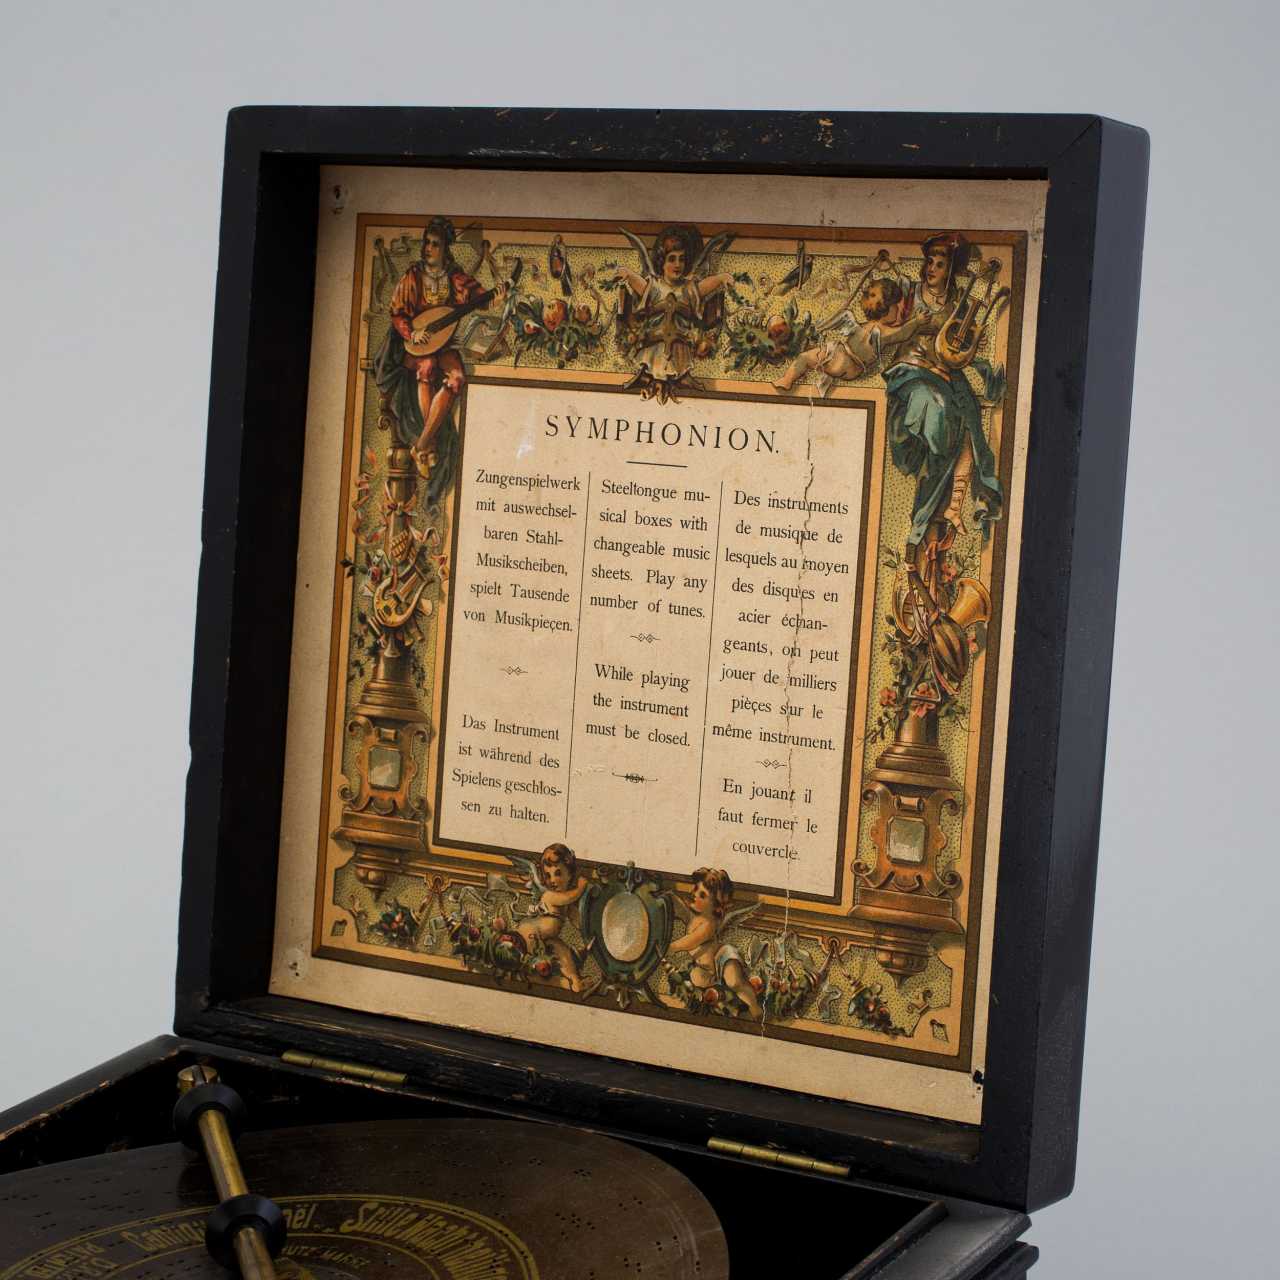 SYMPHONION.
Zungenspielwerk
mit auswechsel-
baren Stahl-
Musikscheiben,
spielt Tausende
von Musikpieçen.
Das Instrument
ist während des
Spielens geschlos-
sen zu halten.
Steeltongue mu-
sical boxes with
changeable music
sheets. Play any
number of tunes.
While playing
the instrument
must be closed.
Des instruments
de musique de
lesquels au moyen
des disques en
acier échan-
geants, on peut
jouer de milliers
pièçes sur le
même instrument.
En jouant il
faut fermer le
couvercle.
Stille Nacht